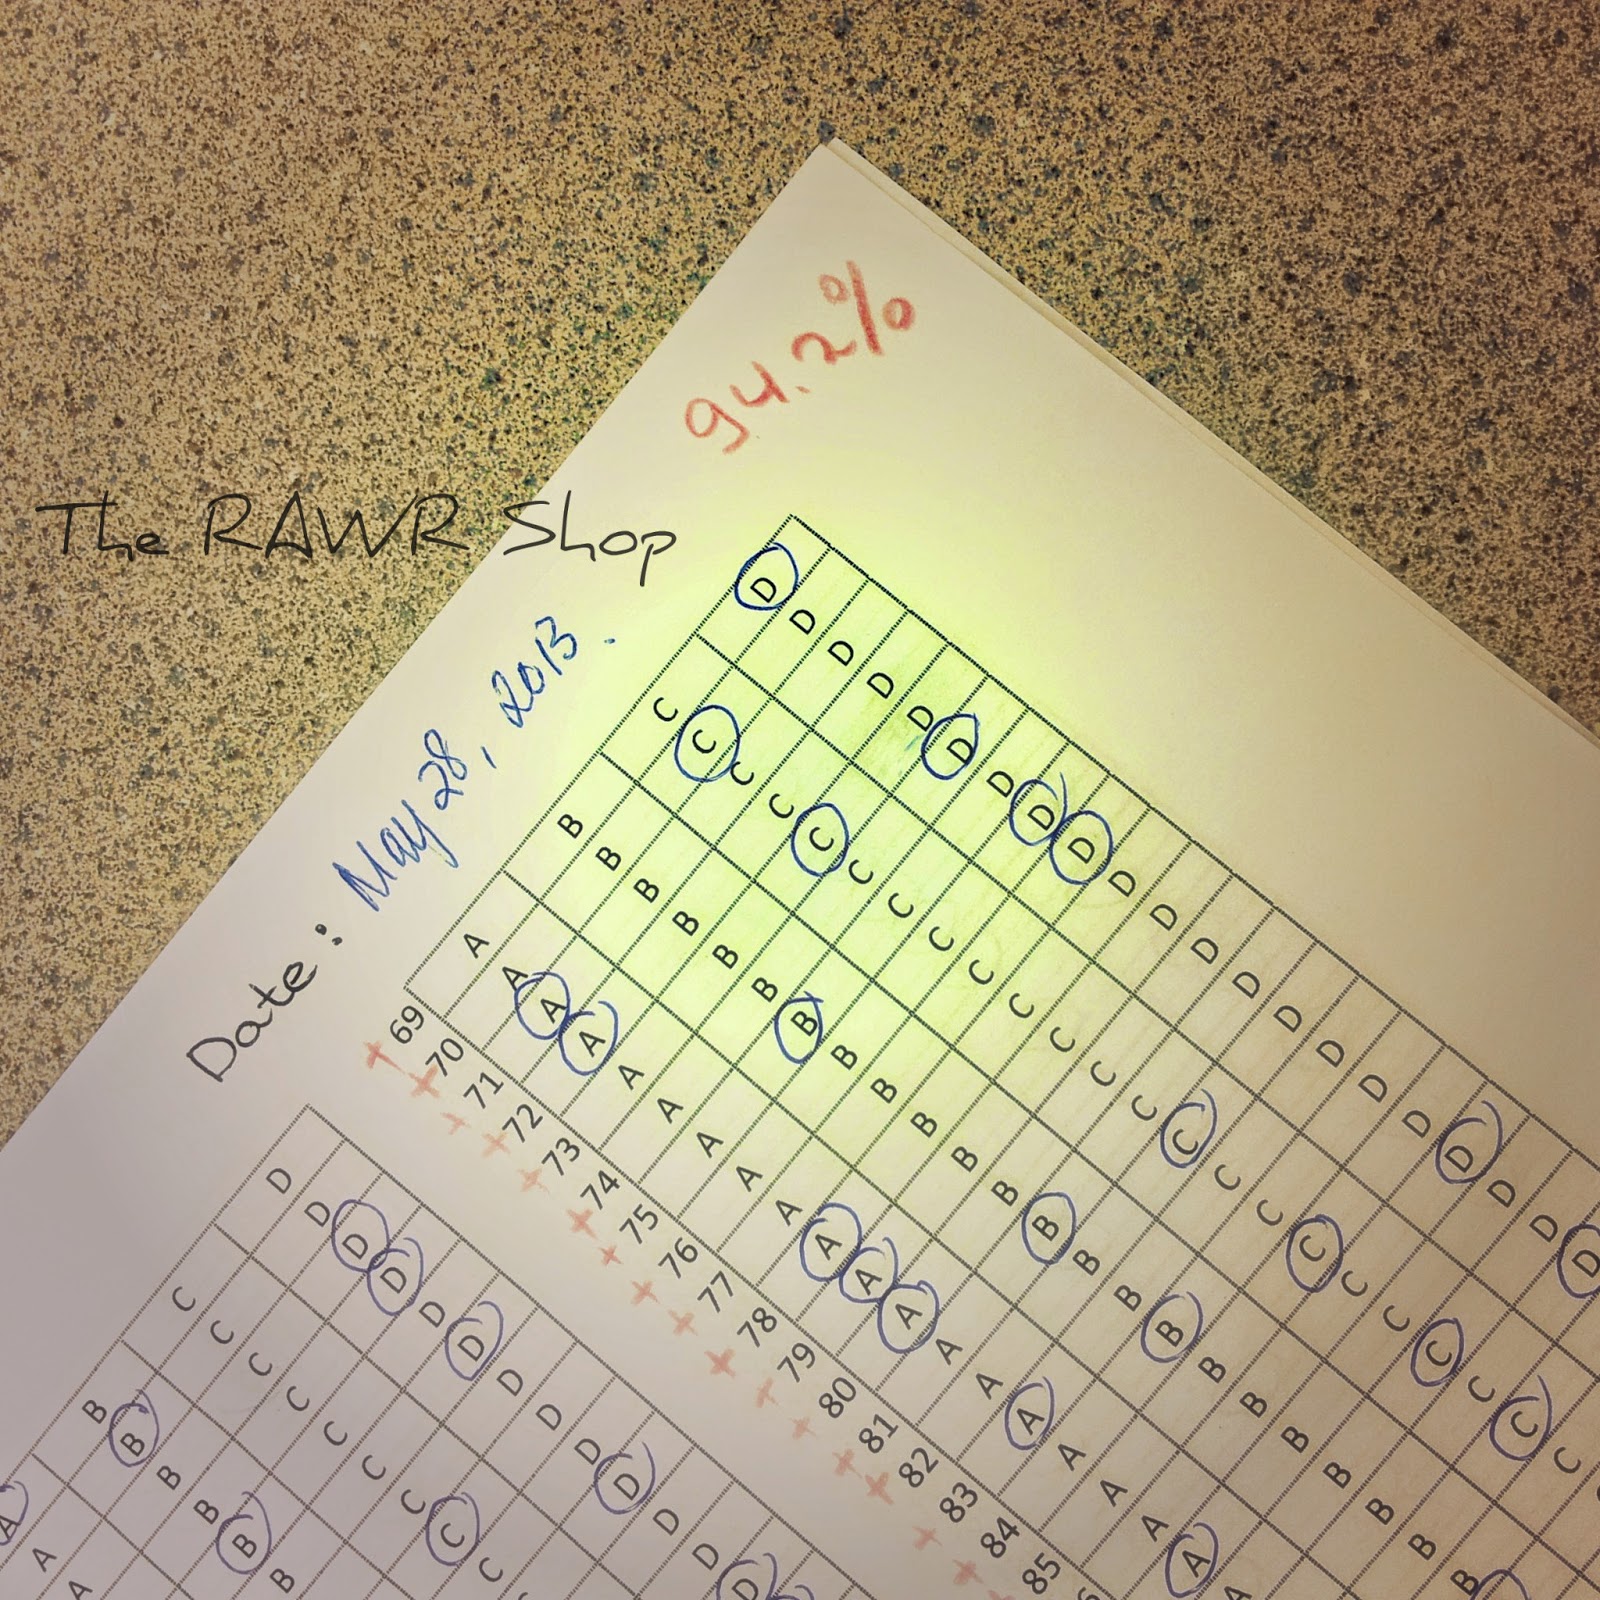 The RAWR Shop
94.2%
Date: May 28, 2013.
A B C D
A B C D
A B C D
B C D
B C D
B C D
C D
C D
C D
D
D
D
D
69 A B C D
70 A B C D
71 A B C D
72 A B C D
73 A B C D
74 A B C D
75 A B C D
76 A B C D
77 A B C D
78 A B C D
79 A B C D
80 A B C D
81 A B C D
82 A B C D
83 A B C D
84 A B C D
85 A B C D
A B C D
A B C D
A B C D
B C D
B C
B C